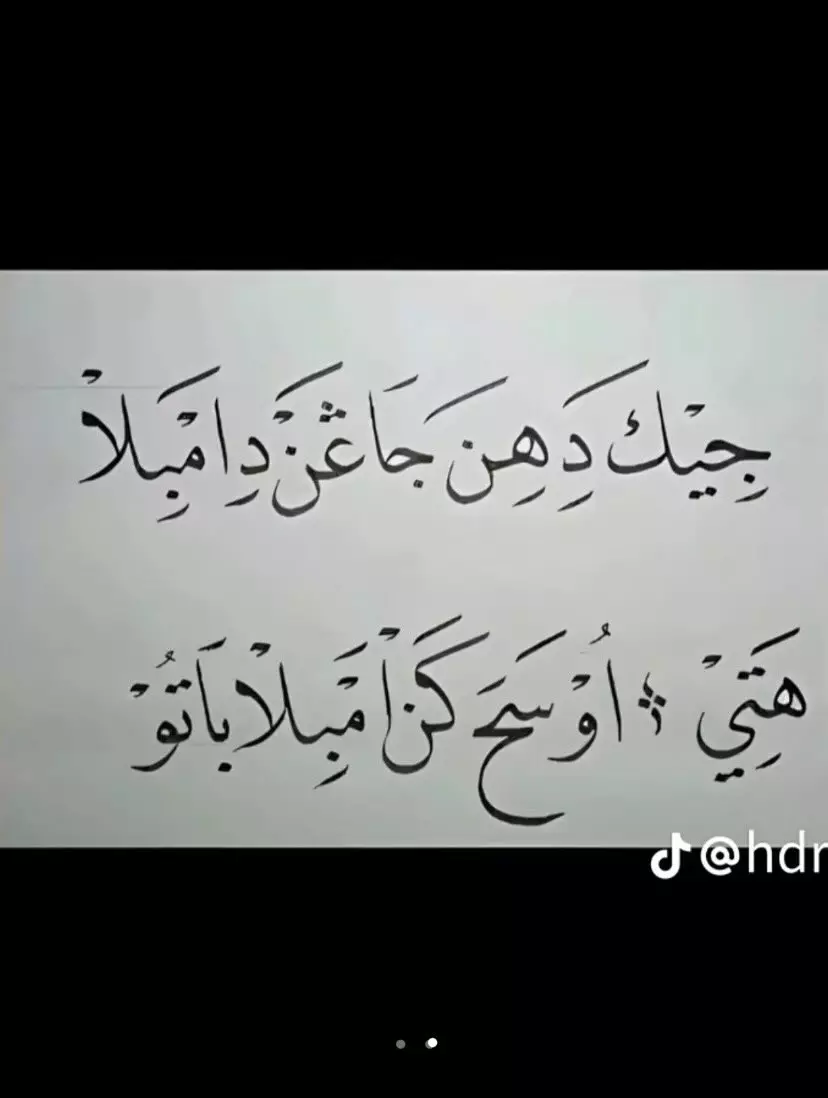 جِيْكَ دِهِنَ جَاڠَنْ دِامْبِلاْ
هَتِيْ ؛ اُوْسَحَ كَنْ امْبِلاْ بَاتُوْ
@hdr